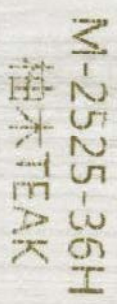 M-2525-36H
柚木TEAK